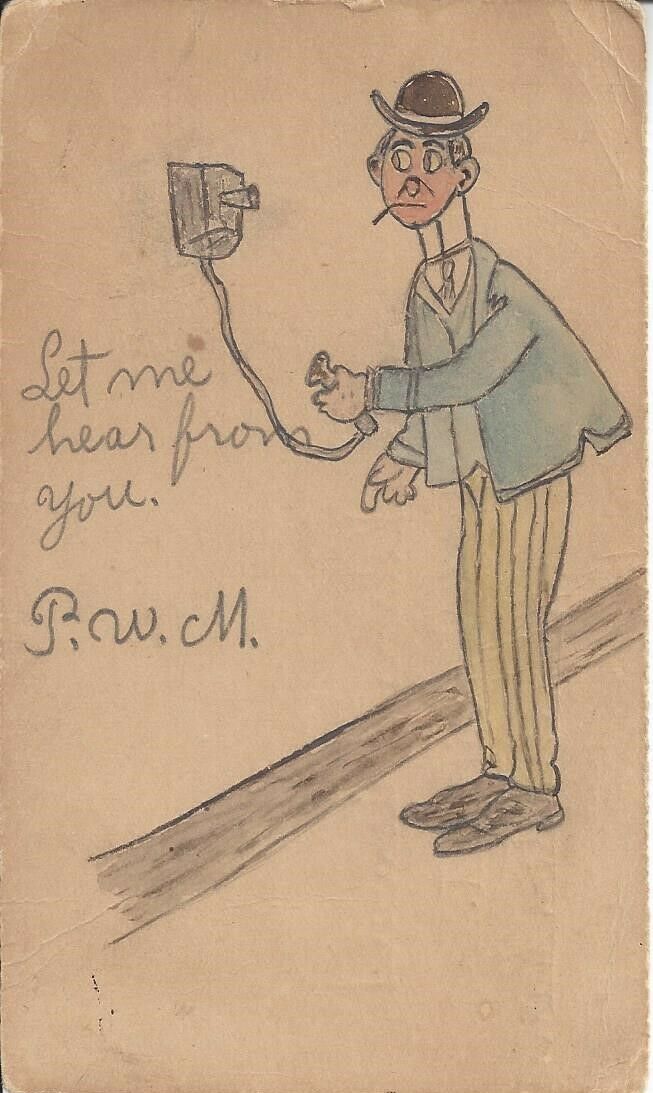 Let me
hear from
you.
P. W. M.